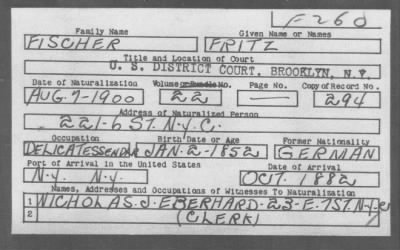 F-260
Family Name Given Name or Names
FISCHER FRITZ
Title and Location of Court
U. S. DISTRICT COURT, BROOKLYN, N.Y.
Date of Naturalization Volume or Bundle No. Page No. Copy of Record No.
AUG-7-1900 22 — 294
Address of Naturalized Person
221-6 ST. N.Y.C.
Occupation Birth Date or Age Former Nationality
DELICATESSEN JAN-2-1852 GERMAN
Port of Arrival in the United States Date of Arrival
N.Y. N.Y. OCT. 1882
Names, Addresses and Occupations of Witnesses To Naturalization
1 NICHOLAS. J. EBERHARD-23-E. 7 ST. N.Y.C
2 (CLERK)